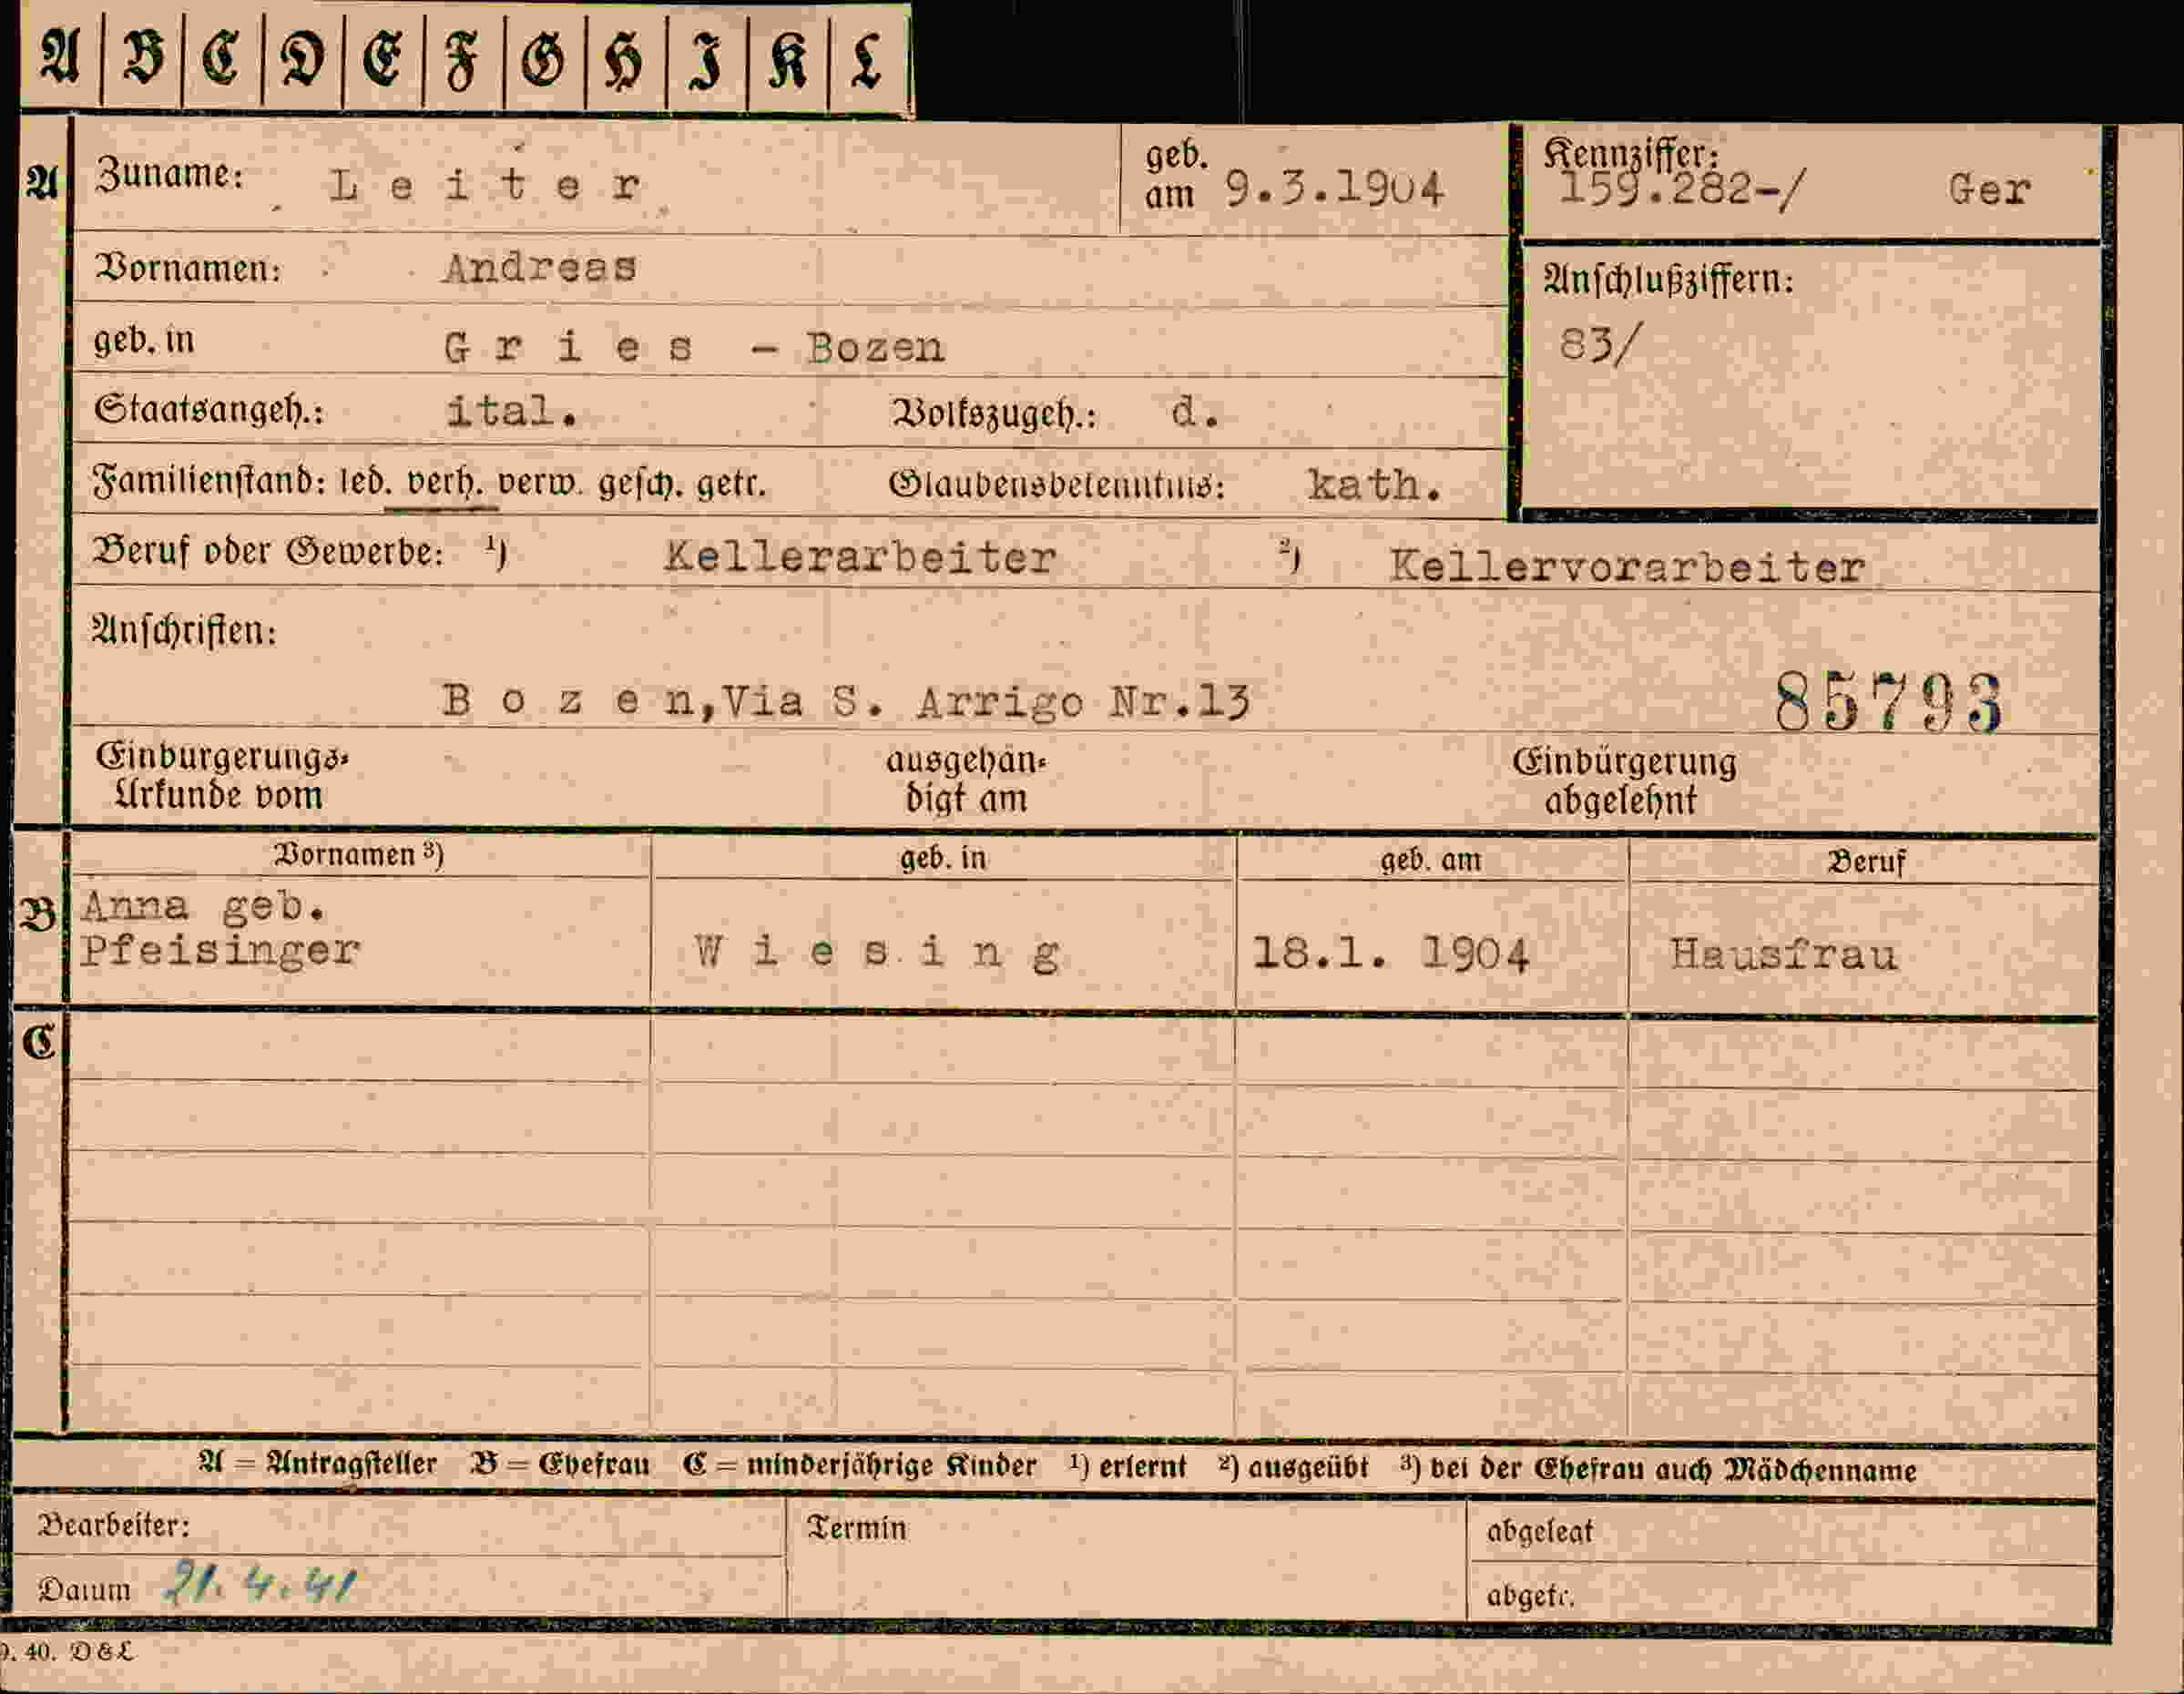 A B C D E F G H I K L
A Zuname: Leiter geb. am 9.3.1904 Kennziffer: 159.282-/ Ger
Vornamen: Andreas Anschlußziffern:
geb. in Gries - Bozen 83/
Staatsangeh.: ital. Volkszugeh.: d.
Familienstand: led. verh. verw. gesch. getr. Glaubensbekenntnis: kath.
Beruf oder Gewerbe: 1) Kellerarbeiter 2) Kellervorarbeiter
Anschriften:
Bozen, Via S. Arrigo Nr.13 85793
Einbürgerungs- ausgehän- Einbürgerung
Urkunde vom digt am abgelehnt
Vornamen 3) geb. in geb. am Beruf
B Anna geb.
Pfeisinger Wiesing 18.1. 1904 Hausfrau
C
A = Antragsteller B = Ehefrau C = minderjährige Kinder 1) erlernt 2) ausgeübt 3) bei der Ehefrau auch Mädchenname
Bearbeiter: Termin abgelegt
Datum 21.4.41 abgetr.
9. 40. D&L